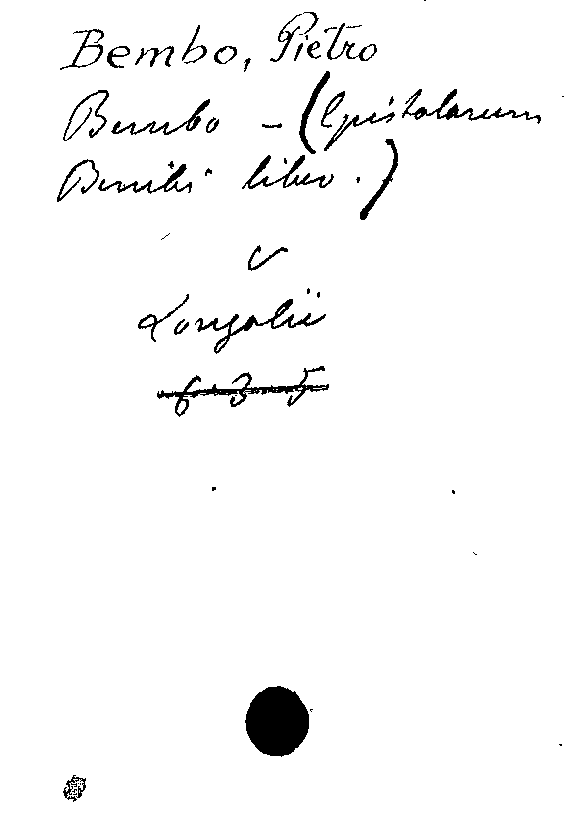 Bembo, Pietro
Bembo - (Epistolarum
Bembi liber.)
v
Longolii
6.3.5